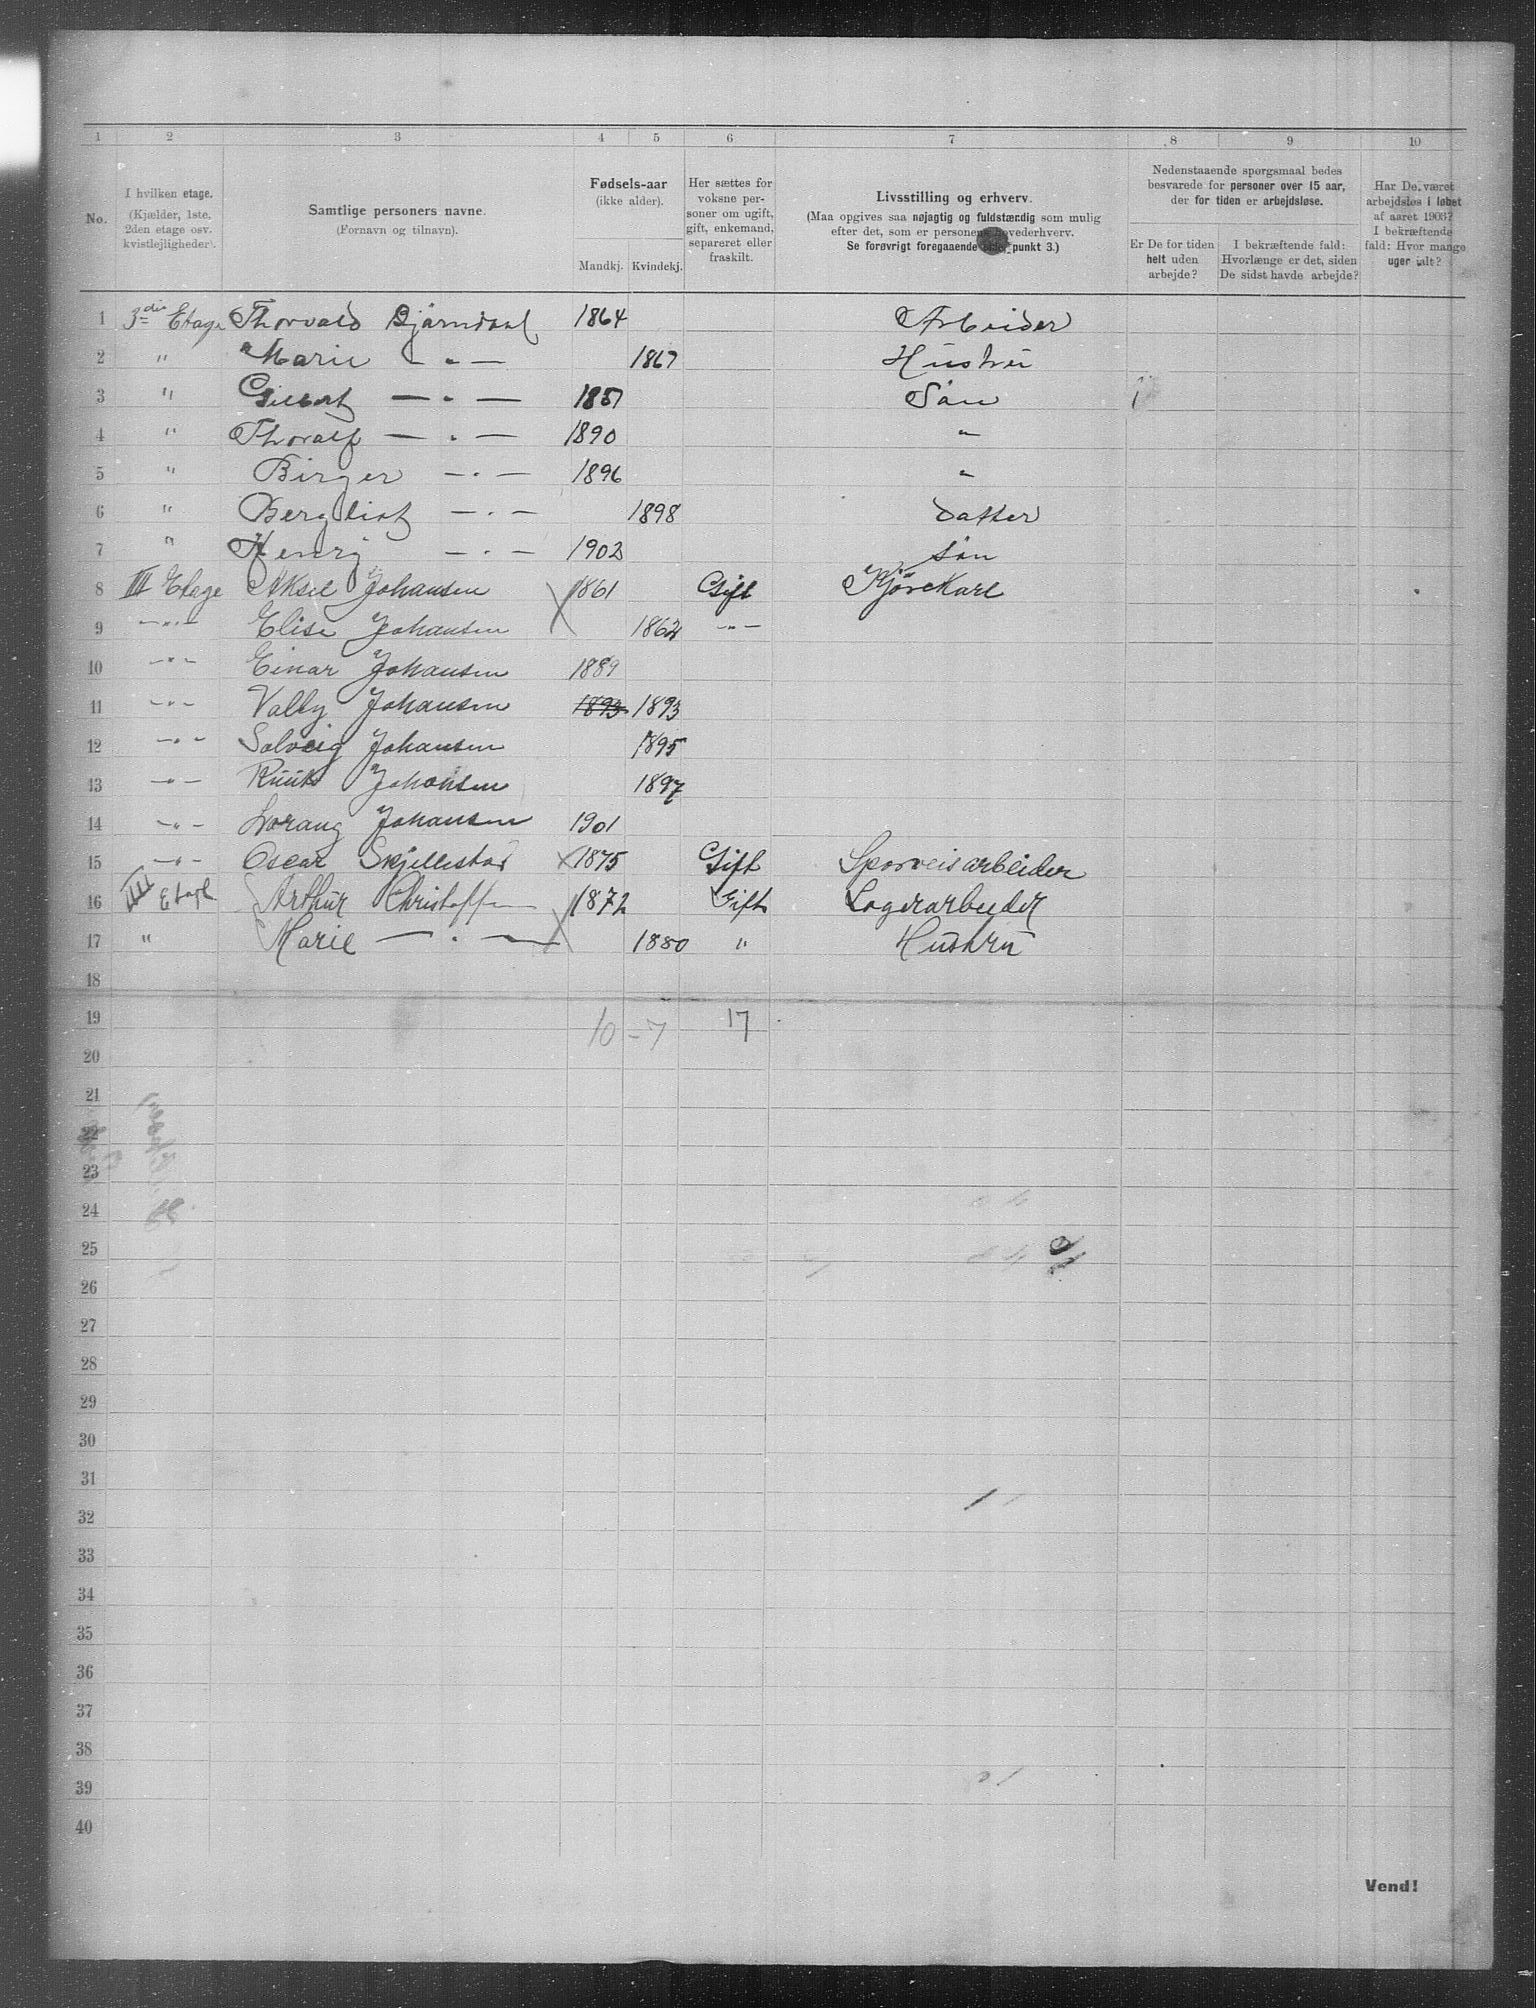 1 2 3 4 5 6 7 8 9 10
No.
I hvilken etage.
(Kjælder, 1ste,
2den etage osv.
kvistlejligheder).
Samtlige personers navne.
(Fornavn og tilnavn).
Fødsels-aar
(ikke alder).
Mandkj. Kvindekj.
Her sættes for
voksne per-
soner om ugift,
gift, enkemand,
separeret eller
fraskilt.
Livsstilling og erhverv.
(Maa opgives saa nøjagtig og fuldstændig som mulig
efter det, som er personens hovederhverv.
Se forøvrigt foregaaende side, punkt 3.)
Nedenstaaende spørgsmaal bedes
besvarede for personer over 15 aar,
der for tiden er arbejdsløse.
Er De for tiden
helt uden
arbejde?
I bekræftende fald:
Hvorlænge er det, siden
De sidst havde arbejde?
Har De været
arbejdsløs i løbet
af aaret 1903?
I bekræftende
fald: Hvor mange
uger ialt?
1 3die Etage Thorvald Bjørndal 1864 Arbeider
2 " Marie — " — 1867 Hustru
3 " — " — Søn
4 " Thoralf — " — 1890 "
5 " Birger — " — 1896 "
6 " Bergliot — " — 1898 Datter
7 " Henry — " — 1902 Søn
8 III Etage Aksel Johansen 1861 Gift Kjørekarl
9 — " — Elise Johansen 1862 — " —
10 — " — Einar Johansen 1889
11 — " — Valby Johansen 1893 1893
12 — " — Solveig Johansen 1895
13 — " — Johansen 1897
14 — " — Lorang Johansen 1901
15 — " — Oscar Skjellestad 1875 Gift Sporveisarbeider
16 IIII Etage Arthur Christoffersen 1872 Gift Lagerarbeider
17 " Marie — " — 1880 " Hustru
18
19 10 - 7 17
20
21
22
23
24
25
26
27
28
29
30
31
32
33
34
35
36
37
38
39
40
Vend!